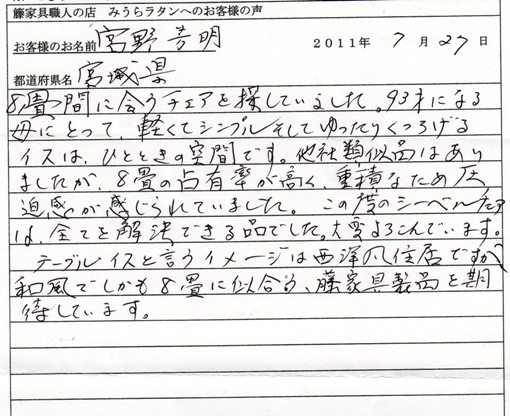 籐家具職人の店 みうらラタンへのお客様の声
お客様のお名前 宮野 芳明 2011年 7月27日
都道府県名 宮城県
8畳間に合うチェアを探していました。93才になる
母にとって、軽くてシンプルそしてゆったりくつろげる
イスは、ひとときの空間です。他社類似品はあり
ましたが、8畳の占有率が高く、重積なため圧
迫感が感じられていました。この度のシーベルチェア
は、全てを解決できる品でした。大変よろこんでいます。
テーブルイスと言うイメージは西洋風住居ですが、
和風でしかも8畳に似合う、藤家具製品を期
待しています。